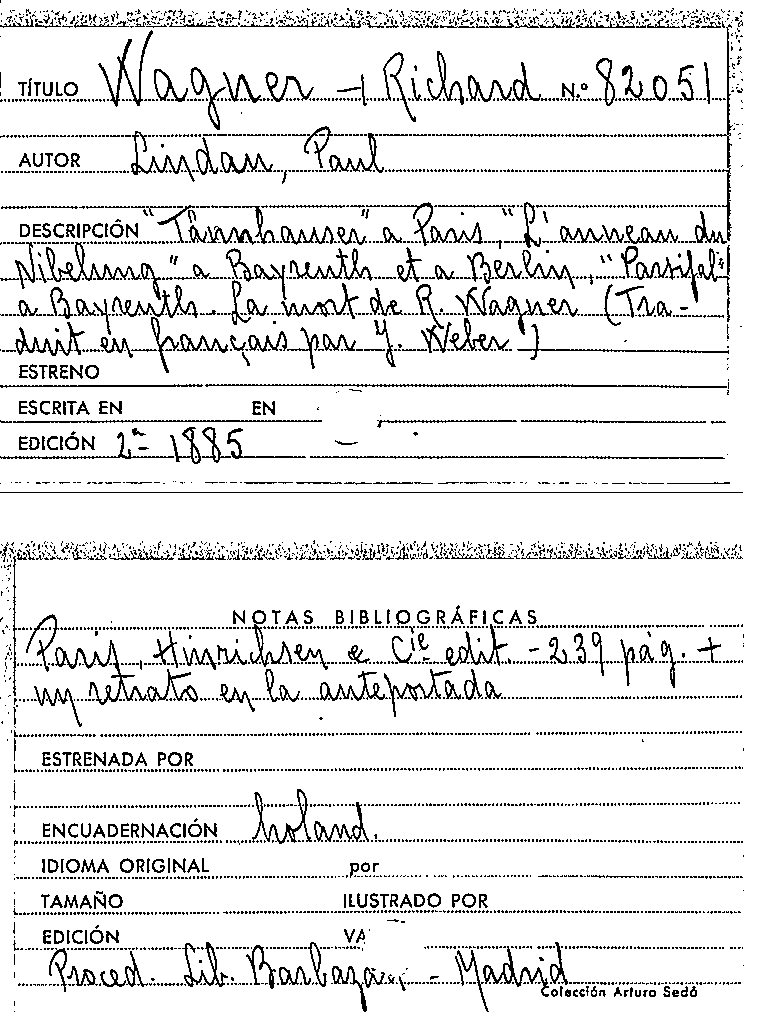 TÍTULO Wagner - Richard N.º 82051
AUTOR Lindau, Paul
DESCRIPCIÓN "Tännhauser" a Paris, "L'anneau du
Nibelung" a Bayreuth et a Berlin, "Parsifal"
a Bayreuth. La mort de R. Wagner (Tra-
duit en français par J. Weber)
ESTRENO
ESCRITA EN EN
EDICIÓN 2ª 1885
NOTAS BIBLIOGRÁFICAS
Paris, Hinrichsen e Cie. edit. - 239 pág. +
un retrato en la anteportada
ESTRENADA POR
ENCUADERNACIÓN holand.
IDIOMA ORIGINAL por
TAMAÑO ILUSTRADO POR
EDICIÓN VA
Proced. Lib. - Madrid
Colección Arturo Sedó